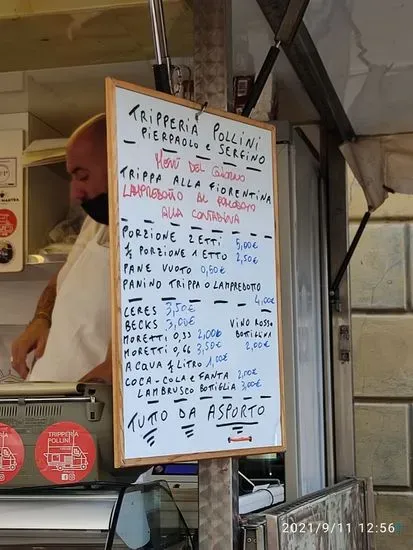 TRIPPERIA POLLINI
PIERPAOLO e SERGINO
MENÙ DEL GIORNO
TRIPPA ALLA FIORENTINA
LAMPREDOTTO AL POMODORO
ALLA CONTADINA
PORZIONE 2 ETTI 5,00€
½ PORZIONE 1 ETTO 2,50€
PANE VUOTO 0,50€
PANINO TRIPPA O LAMPREDOTTO
4,00€
CERES 3,50€
BECKS 3,00€
MORETTI 0,33 2,00€
MORETTI 0,66 3,50€
VINO ROSSO
BOTTIGLINA
2,00€
ACQUA ½ LITRO 1,00€
COCA-COLA e FANTA 2,00€
LAMBRUSCO BOTTIGLIA 3,00€
TUTTO DA ASPORTO
TRIPPERIA
POLLINI
TRIPPERIA
POLLINI
2021/9/11 12:56